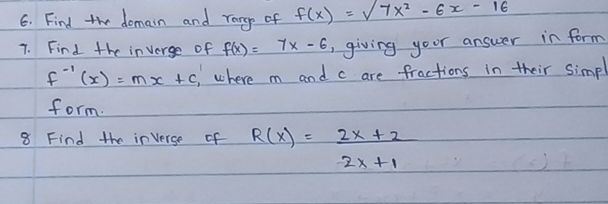 6. Find the domain and range of f(x) = √7x² - 6x - 16
7. Find the inverse of f(x) = 7x - 6, giving your answer in form
f⁻¹(x) = mx + c, where m and c are fractions in their simpl
form.
8 Find the inverse of R(x) = 2x + 2
2x + 1